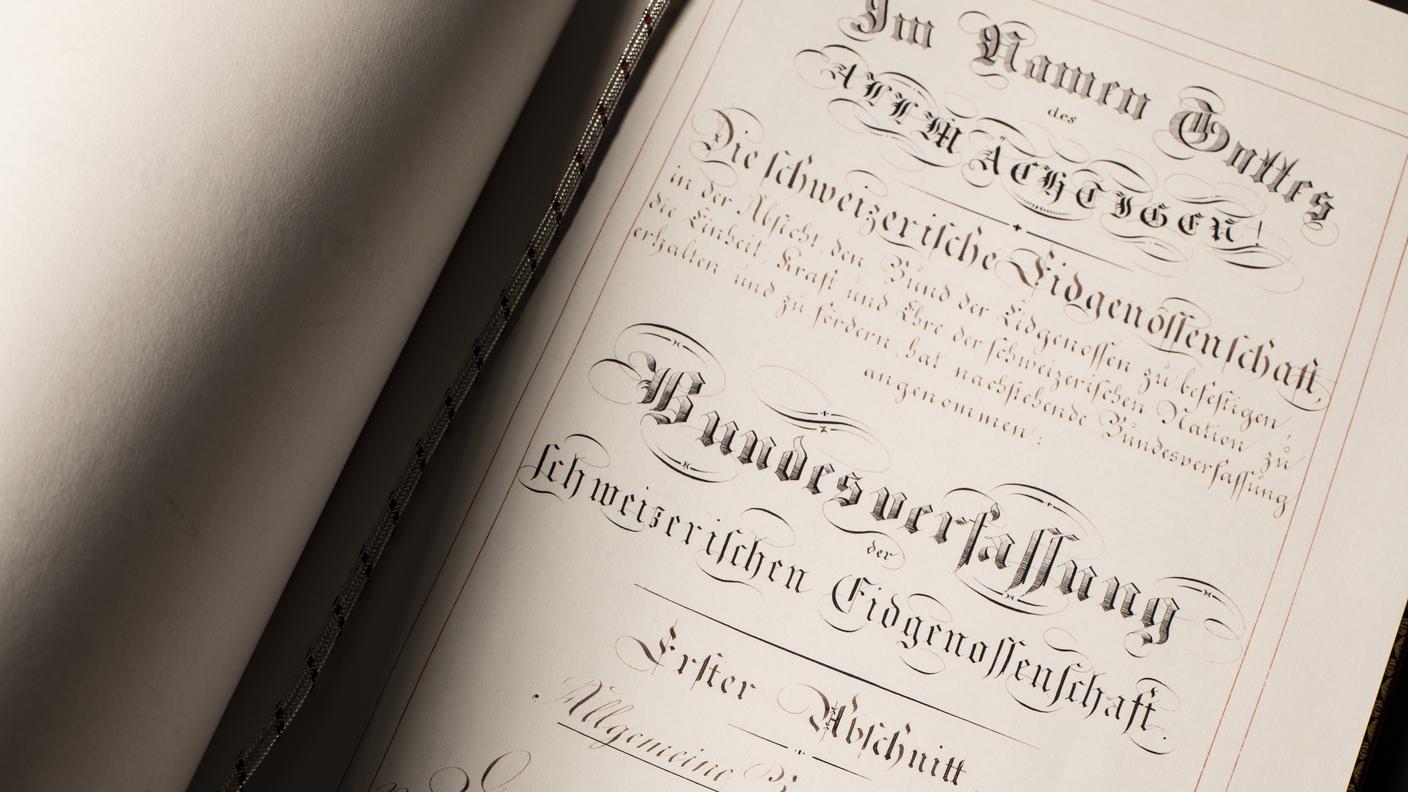 Im Namen Gottes
des
ALLMÄCHTIGEN!
Die ſchweizeriſche Eidgenoſſenſchaft,
in der Abſicht, den Bund der Eidgenoſſen zu befeſtigen,
die Einheit, Kraft und Ehre der ſchweizeriſchen Nation zu
erhalten und zu fördern, hat nachſtehende Bundesverfaſſung
angenommen:
Bundesverfaſſung
der
ſchweizeriſchen Eidgenoſſenſchaft.
Erſter Abſchnitt
Allgemeine